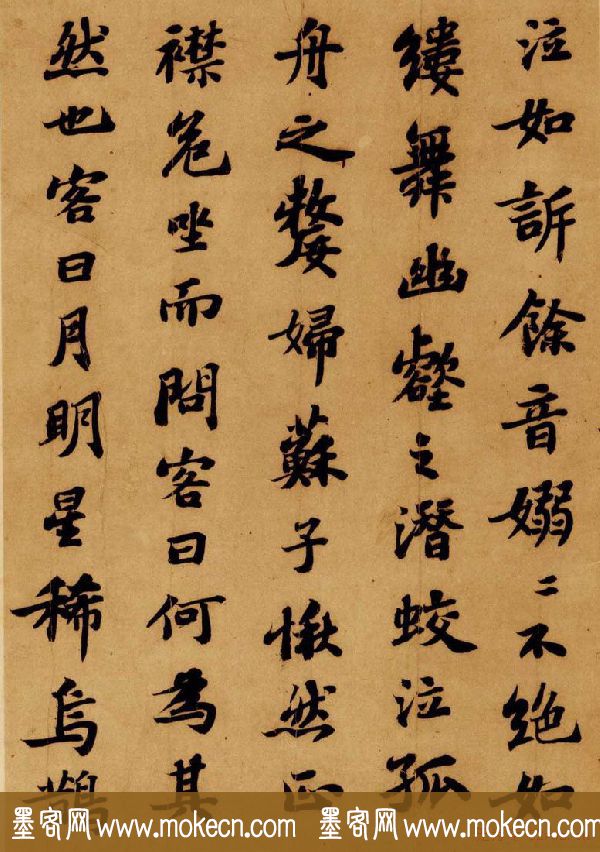 泣如訴餘音嫋〻不絕如
縷舞幽壑之潛蛟泣孤
舟之嫠婦蘇子愀然正
襟危坐而問客曰何為其
然也客曰月明星稀烏鵲
墨客网 www.mokecn.com 墨客网 www.mokecn.com